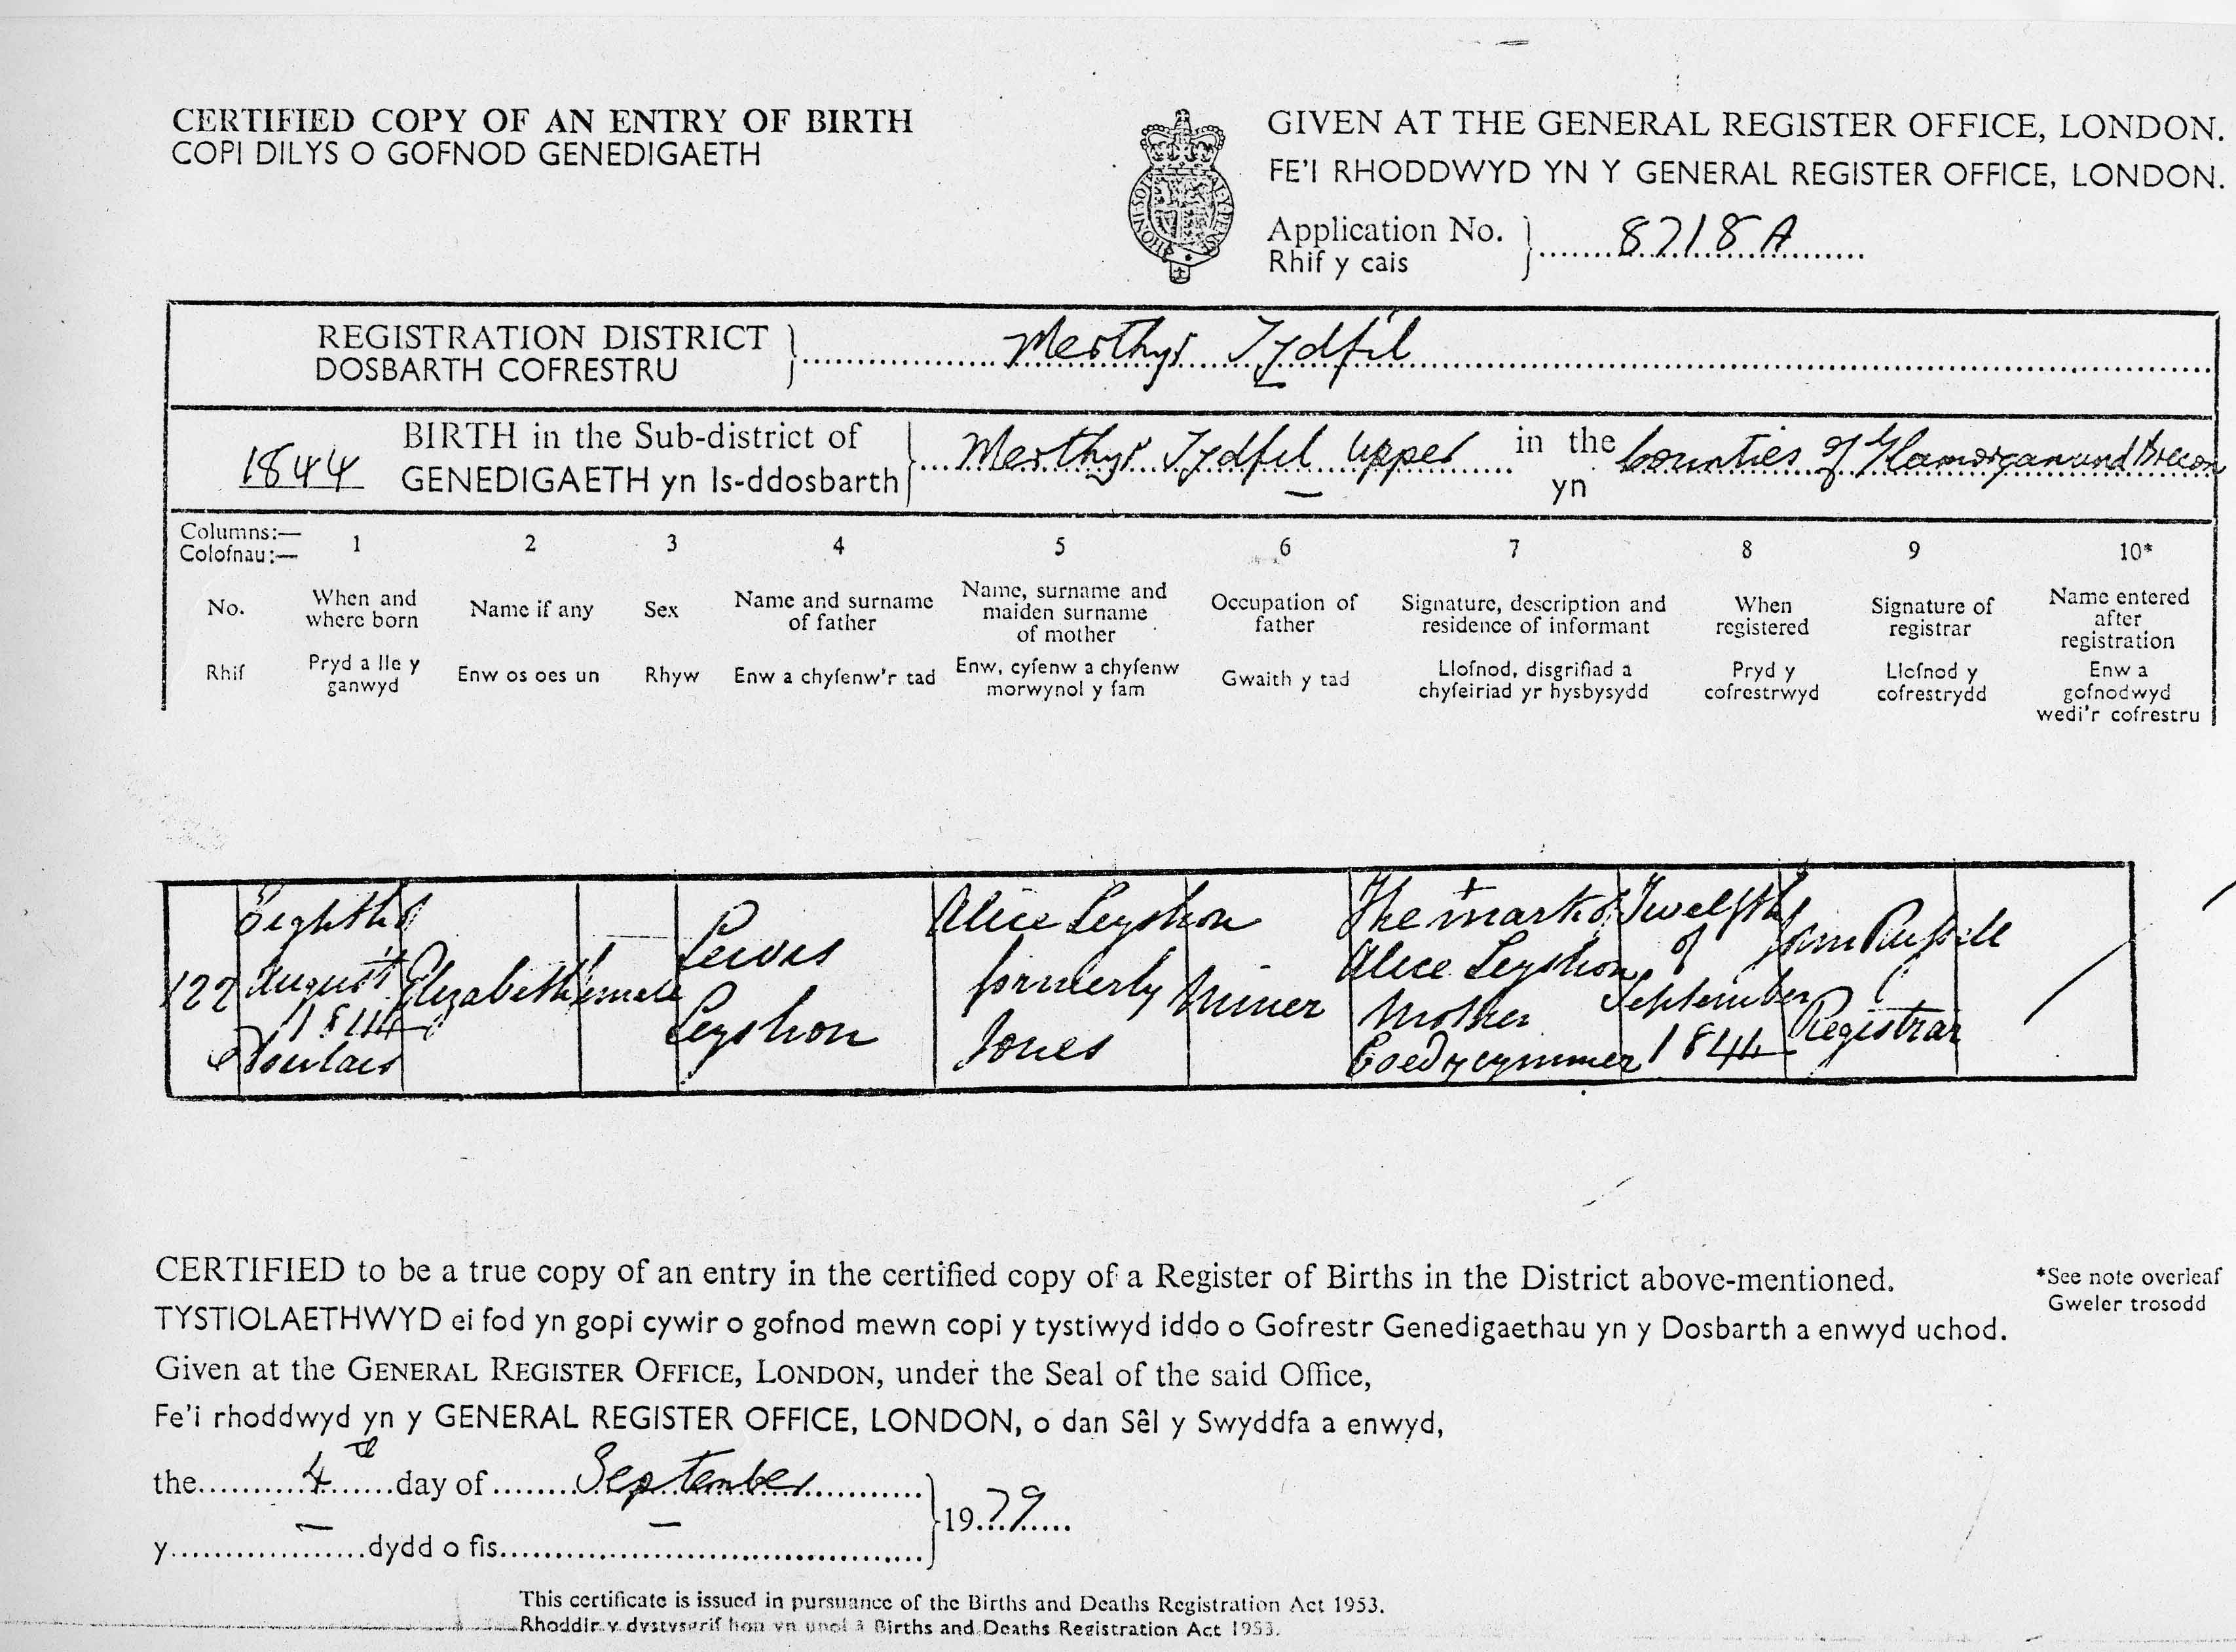 CERTIFIED COPY OF AN ENTRY OF BIRTH
COPI DILYS O GOFNOD GENEDIGAETH
GIVEN AT THE GENERAL REGISTER OFFICE, LONDON.
FE'I RHODDWYD YN Y GENERAL REGISTER OFFICE, LONDON.
Application No. 8718A
Rhif y cais
REGISTRATION DISTRICT Merthyr Tydfil
DOSBARTH COFRESTRU
1844 BIRTH in the Sub-district of Merthyr Tydfil Upper in the Counties of Glamorgan and Brecon
GENEDIGAETH yn Is-ddosbarth yn
Columns:— 1 2 3 4 5 6 7 8 9 10*
Colofnau:—
No.
When and
where born
Name if any
Sex
Name and surname
of father
Name, surname and
maiden surname
of mother
Occupation of
father
Signature, description and
residence of informant
When
registered
Signature of
registrar
Name entered
after
registration
Rhif
Pryd a lle y
ganwyd
Enw os oes un
Rhyw
Enw a chyfenw'r tad
Enw, cyfenw a chyfenw
morwynol y fam
Gwaith y tad
Llofnod, disgrifiad a
chyfeiriad yr hysbysydd
Pryd y
cofrestrwyd
Llofnod y
cofrestrydd
Enw a
gofnodwyd
wedi'r cofrestru
122
Eighth of
August
1844
Dowlais
Elizabeth
female
Lewis
Leyshon
Alice Leyshon
formerly
Jones
Miner
The mark of
Alice Leyshon
Mother
Coedycymmer
Twelfth
of
September
1844
John Russell
Registrar
CERTIFIED to be a true copy of an entry in the certified copy of a Register of Births in the District above-mentioned.
TYSTIOLAETHWYD ei fod yn gopi cywir o gofnod mewn copi y tystiwyd iddo o Gofrestr Genedigaethau yn y Dosbarth a enwyd uchod.
*See note overleaf
Gweler trosodd
Given at the GENERAL REGISTER OFFICE, LONDON, under the Seal of the said Office,
Fe'i rhoddwyd yn y GENERAL REGISTER OFFICE, LONDON, o dan Sêl y Swyddfa a enwyd,
the 4th day of September 1979
y dydd o fis
This certificate is issued in pursuance of the Births and Deaths Registration Act 1953.
Rhoddir y dystysgrif hon yn unol â Births and Deaths Registration Act 1953.